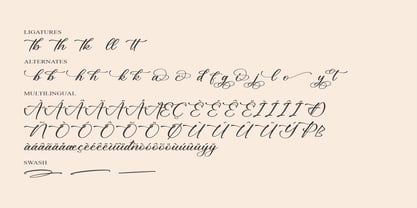 LIGATURES
tb th tk ll tt
ALTERNATES
b b h k k a d d f g j j l o y t
MULTILINGUAL
ÀÁÂÃÄÅÆÇÈÉÊËÌÍÎÏÐ
ÑÒÓÔÕÖØÙÚÛÜÝÞß
àáâãäåæçèéêëìíîïðñòóôõöøùúûüýÿ
SWASH